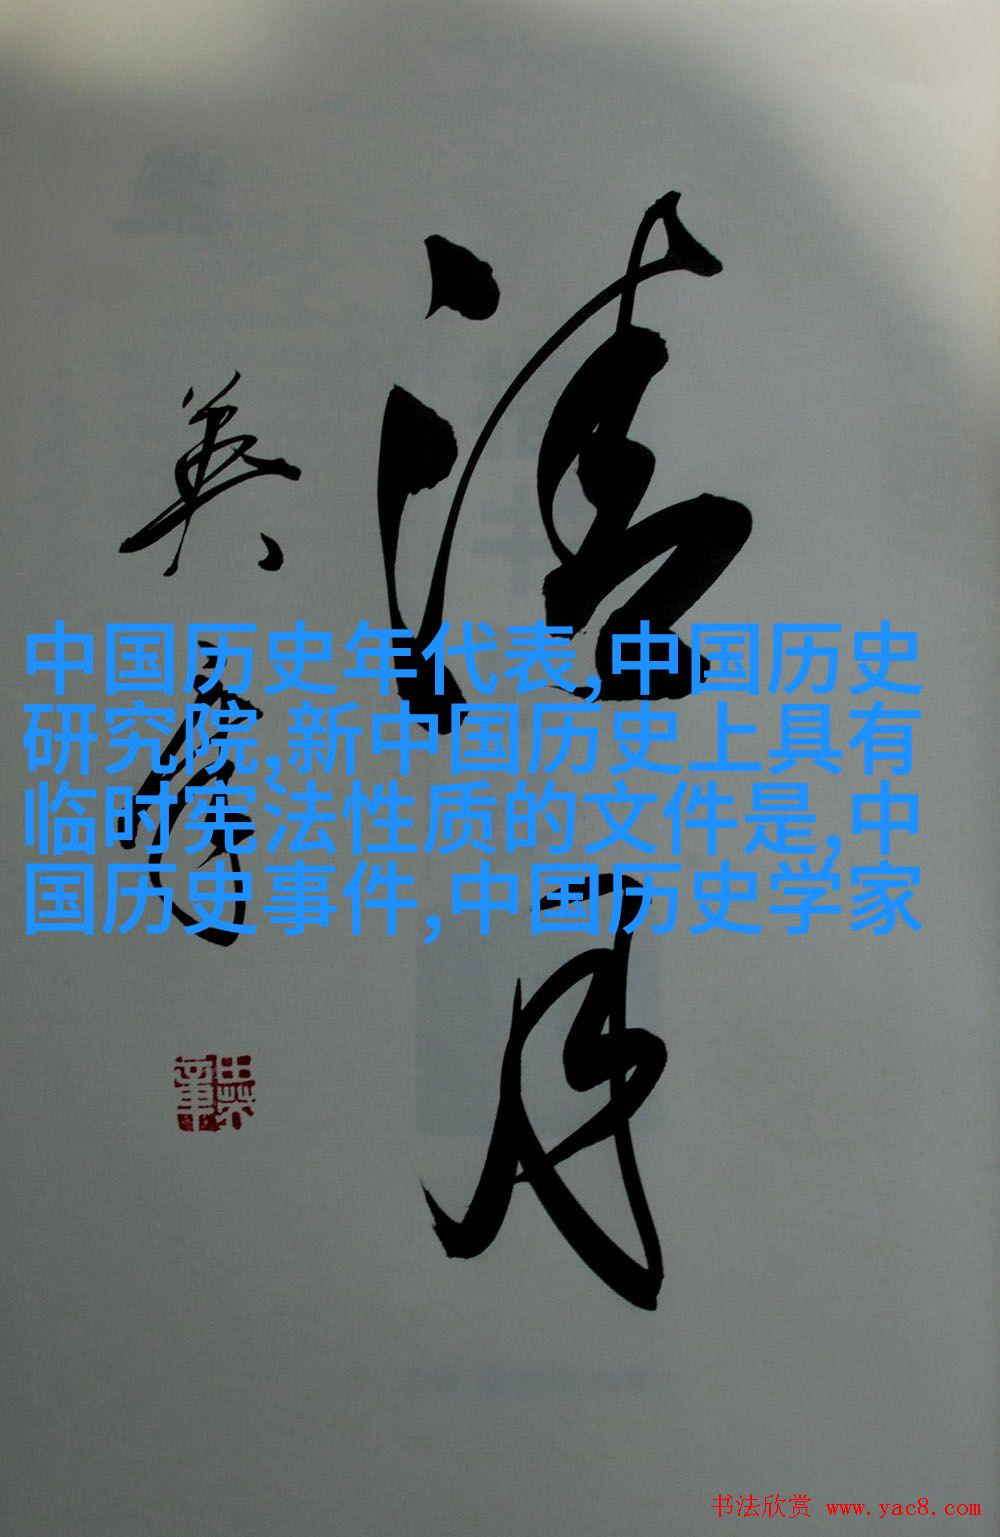 清
月
英
中国历史年代表,中国历史
研究院,新中国历史上具有
临时宪法性质的文件是,中
国历史事件,中国历史学家
书法欣赏 www.yac8.com